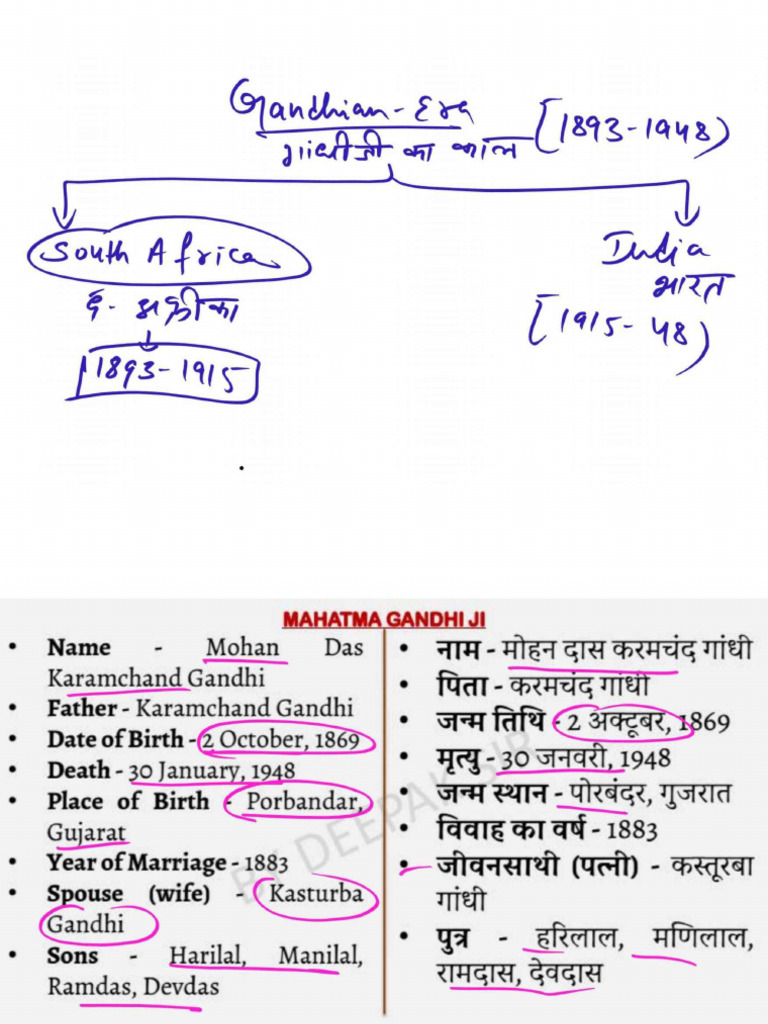 Gandhian - Era
गांधीजी का काल [1893-1948)
South Africa
द. अफ्रीका
1893-1915
India
भारत
[1915-48)
MAHATMA GANDHI JI
• Name - Mohan Das
Karamchand Gandhi
• Father - Karamchand Gandhi
• Date of Birth - 2 October, 1869
• Death - 30 January, 1948
• Place of Birth - Porbandar,
Gujarat
• Year of Marriage - 1883
• Spouse (wife) - Kasturba
Gandhi
• Sons - Harilal, Manilal,
Ramdas, Devdas
• नाम - मोहन दास करमचंद गांधी
• पिता - करमचंद गांधी
• जन्म तिथि - 2 अक्टूबर, 1869
• मृत्यु - 30 जनवरी, 1948
• जन्म स्थान - पोरबंदर, गुजरात
• विवाह का वर्ष - 1883
• जीवनसाथी (पत्नी) - कस्तूरबा
गांधी
• पुत्र - हरिलाल, मणिलाल,
रामदास, देवदास
BY DEEPAK SIR